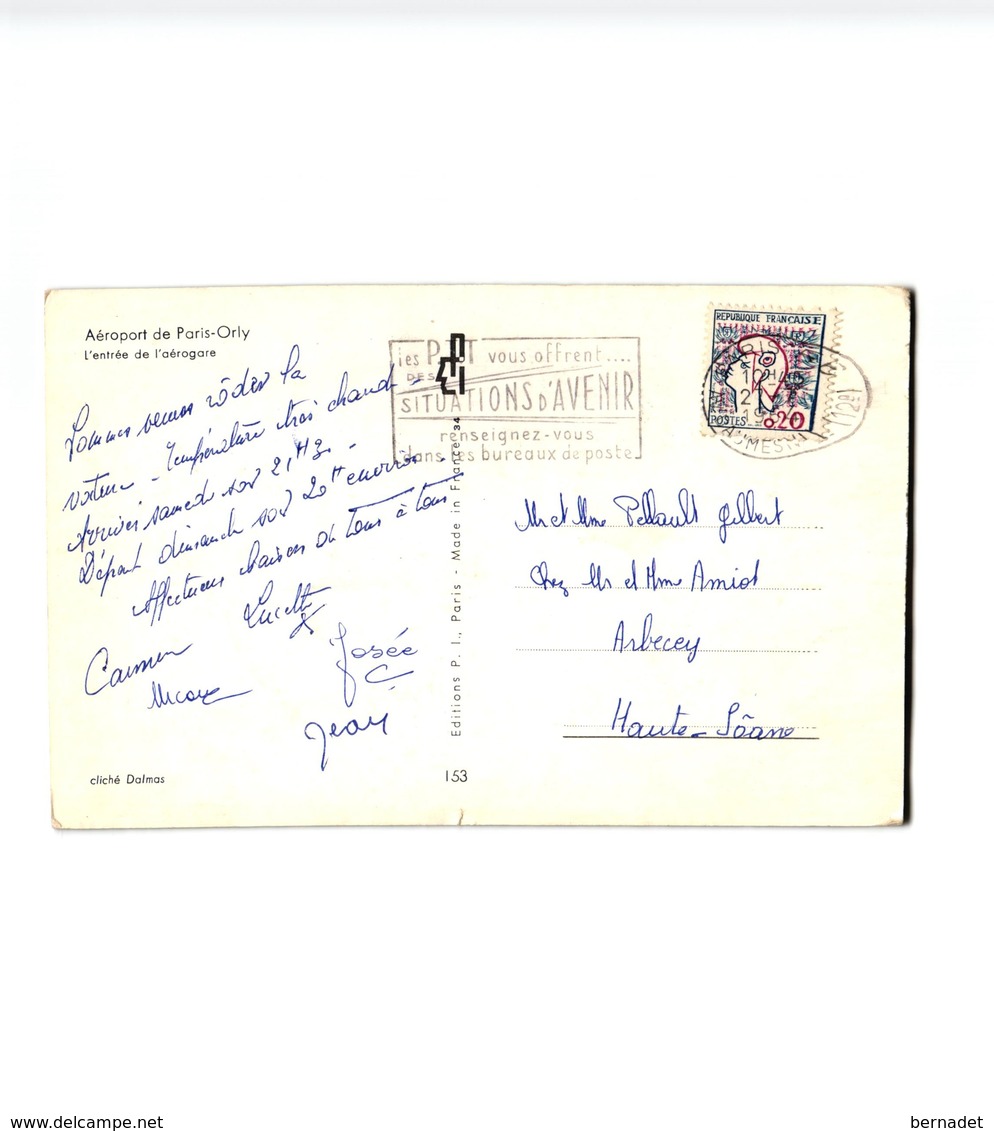 Aéroport de Paris-Orly
L'entrée de l'aérogare
Sommes venus rôder la
voiture - Température très chaude -
Arrivés samedi soir 21H30 -
Départ dimanche soir 20H environ -
Affectueux baisers de tous à tous
Lucette
Carmen
Josée
Jean
cliché Dalmas
153
Editions P. I., Paris - Made in France 34
les P T vous offrent....
DES
SITUATIONS D'AVENIR
renseignez-vous
dans les bureaux de poste
REPUBLIQUE FRANÇAISE
POSTES
0,20
PARIS
Mr et Mme Pellault Gilbert
Chez Mr et Mme Amiot
Arbecey
Haute-Sôane
delcampe.net
bernadet